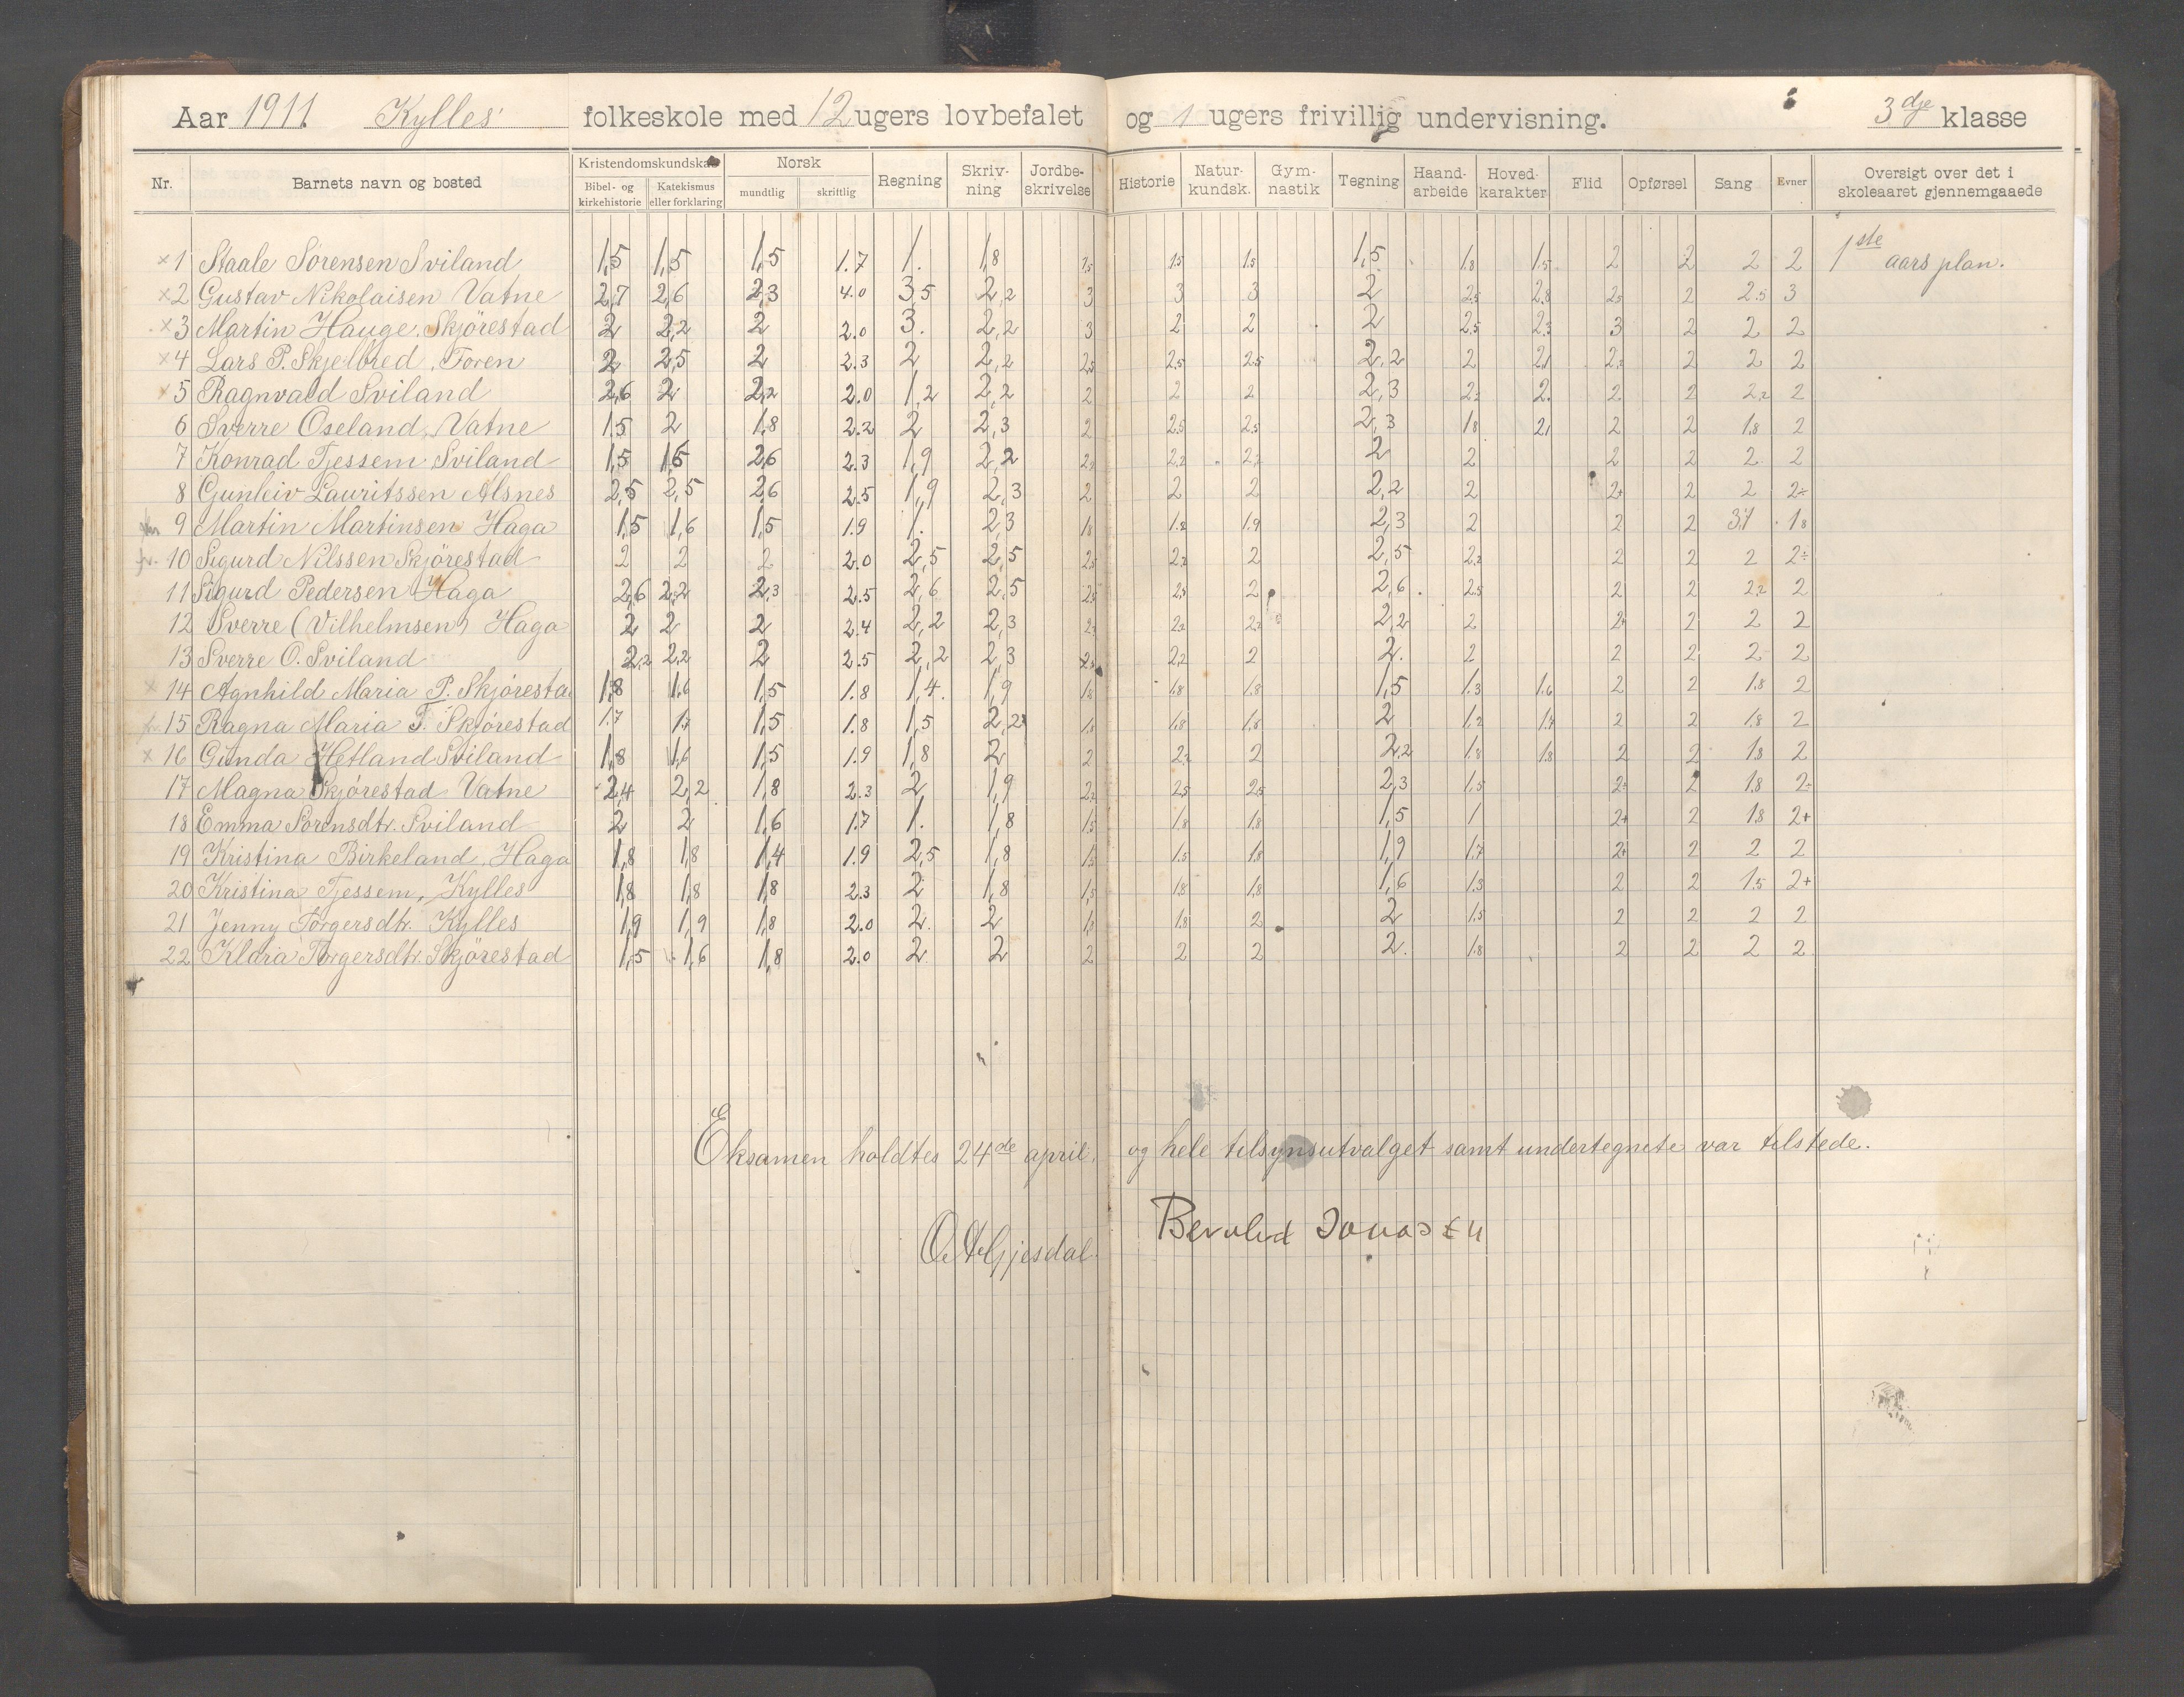 Aar 1911 Kylles folkeskole med 12 ugers lovbefalet og 1 ugers frivillig undervisning. 3dje klasse
Nr. Barnets navn og bosted Kristendomskundskab Bibel- og kirkehistorie Katekismus eller forklaring Norsk mundtlig skriftlig Regning Skriv-ning Jordbe-skrivelse Historie Natur-kundsk. Gym-nastik Tegning Haand-arbeide Hoved-karakter Flid Opførsel Sang Evner Oversigt over det i skoleaaret gjennemgaaede
×1 Staale Sørensen Sviland 1,5 1,5 1,5 1.7 1. 1,8 1,5 1,5 1,5 1,5 1,8 1,5 2 2 2 2 1ste aars plan.
×2 Gustav Nikolaisen Vatne 2,7 2,6 2,3 4.0 3,5 2,2 3 3 3 2 2,5 2,8 2,5 2 2.5 3
×3 Martin Hauge Skjörestad 2 2,2 2 2.0 3. 2,2 3 2 2 2 2,5 2,3 3 2 2 2
×4 Lars P. Skjelbred, Foren 2 2,5 2 2.3 2 2,2 2,5 2,5 2,5 2,2 2 2,1 2 2 2
×5 Ragnvald Sviland 2,6 2 2,2 2.0 1,2 2,2 2 2 2 2,3 2. 2 2 2,2 2
6 Sverre Oseland, Vatne 1,5 2 1,8 2.2 2 2,3 2 2,5 2,5 2,3 1,8 2,1 2 2 1,8 2
7 Konrad Tjessem Sviland 1,5 1,5 2,6 2.3 1,9 2,2 2,2 2,2 2 2 2 2 2 2
8 Gunleiv Lauritssen Alsnes 2,5 2,5 2,6 2.5 1,9 2,3 2 2 2 2,2 2 2+ 2 2 2÷
9 Martin Martinsen Haga 1,5 1,6 1,5 1.9 1. 2,3 1,8 1.8 1.9 2,3 2 2 2 3,1 1,8
10 Sigurd Nilssen Skjörestad 2 2 2 2.0 2,5 2,5 2,5 2,2 2 2,5 2,2 2 2 2 2÷
11 Sigurd Pedersen Haga 2,6 2,2 2,3 2.5 2,6 2,5 2,5 2,5 2 2,6 2,5 2 2 2,2 2
12 Sverre (Vilhelmsen) Haga 2 2 2 2.4 2,2 2,3 2,2 2,2 2,2 2,2 2 2+ 2 2 2
13 Sverre O. Sviland 2,2 2,2 2 2.5 2,2 2,3 2,2 2 2. 2 2 2 2 2
14 Agnhild Maria P. Skjöresta 1,8 1,6 1,5 1.8 1,4. 1,9 1,8 1,8 1,8 1,5 1.3 1.6 2 2 1,8 2
15 Ragna Maria T. Skjörestad 1.7 1,7 1,5 1.8 1,5 2,2 1,8 1,8 1,8 2 1,2 2 2 1,8 2
× 16 Gunda Hetland Sviland 1,8 1,6 1,5 1.9 1,8 2 2 2,2 2 2,2 1,8 1,8 2 2 1,8 2
17 Magna Skjörestad Vatne 2,4 2,2 1,8 2.3 2 1,9 2,2 2,5 2,5 2,3 1,5 2÷ 2 1,8 2÷
18 Emma Sörensdtr. Sviland 2 2 1,6 1.7 1. 1,8 1,5 1,8 1,8 1,5 1 2+ 2 1,8 2+
19 Kristina Birkeland, Haga 1,8 1,8 1,4 1.9 2,5 1,8 1,5 1,5 1,8 1,9 1,7 2+ 2 2 2
20 Kristina Tjessem, Kylles 1,8 1,8 1,8 2.3 2 1,8 1,5 1,8 1,8 1,6 1,3 2 2 1,5 2+
21 Jenny Torgersdtr. Kylles 1,9 1,9 1,8 2.0 2. 2 1,8 1,8 2 2 1,5 2 2 2 2
22 Klara Torgersdtr. Skjörestad 1,5 1,6 1,8 2.0 2. 2 2 2 2 2. 1,8 2 2 2 2
Eksamen holdtes 24de april. og hele tilsynsutvalget samt undertegnete var tilstede.
O. A. Gjesdal Jonasen